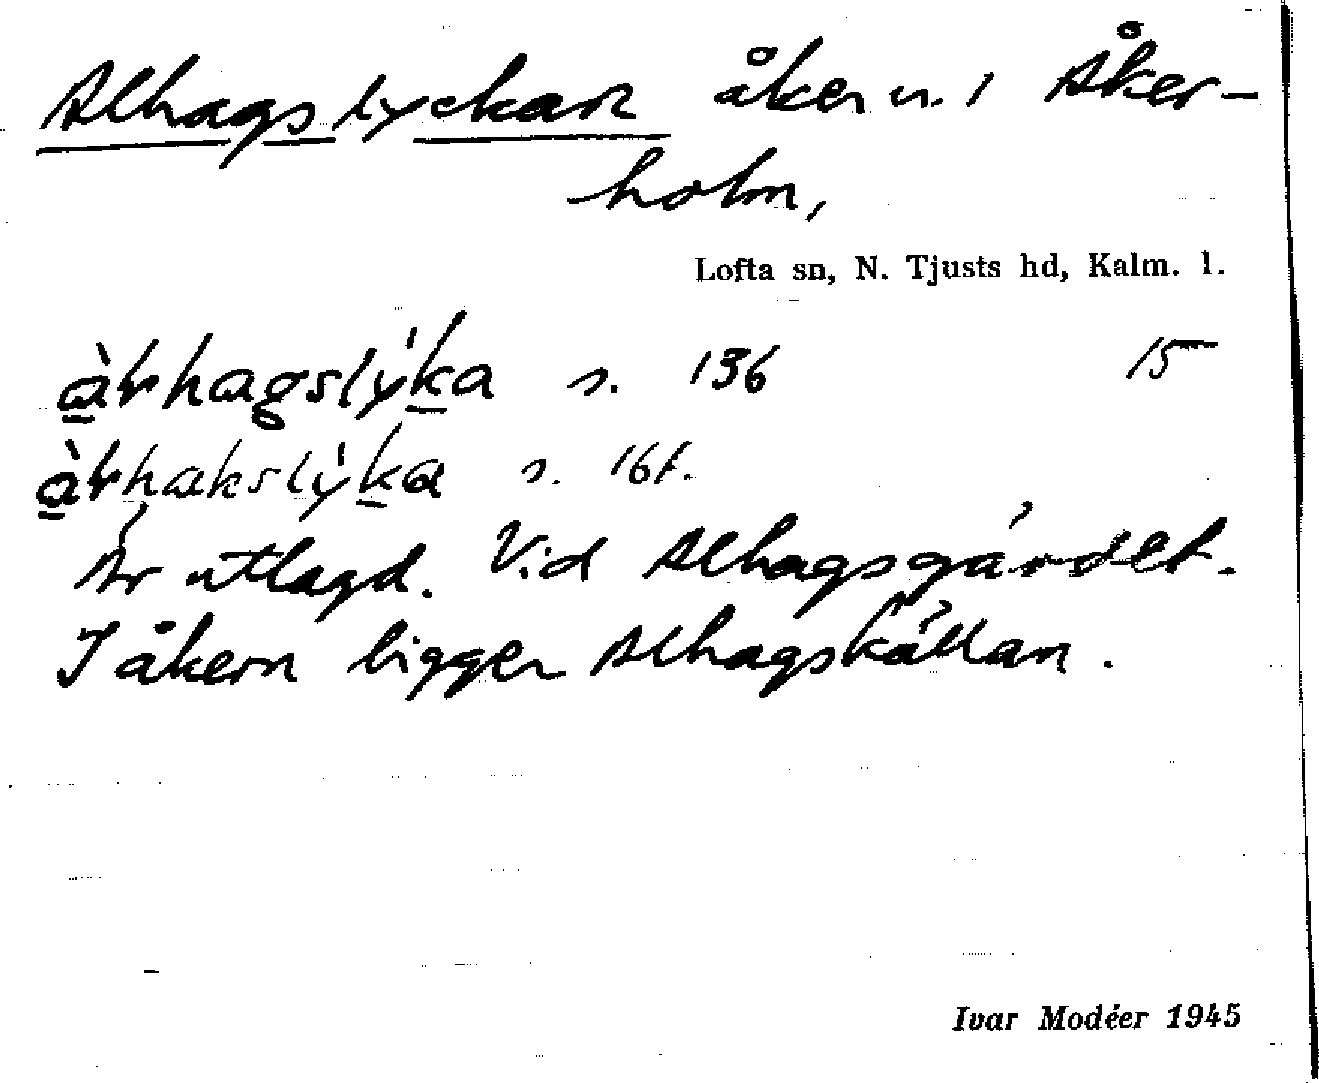 Alhagslyckan åkern. i Åker-
holm,
Lofta sn, N. Tjusts hd, Kalm. l.
s. 136 15
s. 161.
Är utlagd. Vid Alhagsgärdet.
I åkern ligger Alhagskällan.
Ivar Modéer 1945